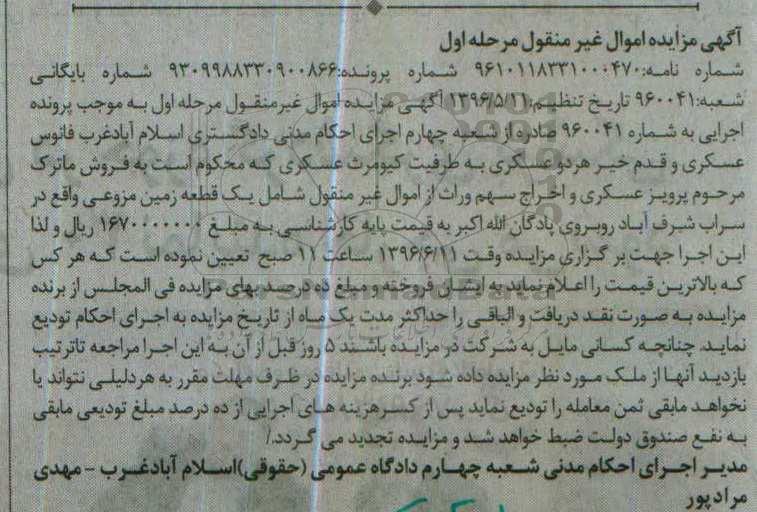 آگهی مزایده اموال غیر منقول مرحله اول
شماره نامه:۹۶۱۰۱۱۸۳۳۱۰۰۰۴۷۰ شماره پرونده:۹۳۰۹۹۸۸۳۳۰۹۰۰۸۶۶ شماره بایگانی
شعبه:۹۶۰۰۴۱ تاریخ تنظیم:۱۳۹۶/۵/۱۱ آگهی مزایده اموال غیرمنقول مرحله اول به موجب پرونده
اجرایی به شماره ۹۶۰۰۴۱ صادره از شعبه چهارم اجرای احکام مدنی دادگستری اسلام آبادغرب فانوس
عسکری و قدم خیر هردو عسکری به طرفیت کیومرث عسکری که محکوم است به فروش ماترک
مرحوم پرویز عسکری و اخراج سهم وراث از اموال غیر منقول شامل یک قطعه زمین مزوعی واقع در
سراب شرف آباد روبروی پادگان الله اکبر به قیمت پایه کارشناسی به مبلغ ۱۶۷۰۰۰۰۰۰۰ ریال و لذا
این اجرا جهت بر گزاری مزایده وقت ۱۳۹۶/۶/۱۱ ساعت ۱۱ صبح تعیین نموده است که هر کس
که بالاترین قیمت را اعلام نماید به ایشان فروخته و مبلغ ده درصد بهای مزایده فی المجلس از برنده
مزایده به صورت نقد دریافت و الباقی را حداکثر مدت یک ماه از تاریخ مزایده به اجرای احکام تودیع
نماید. چنانچه کسانی مایل به شرکت در مزایده باشند ۵ روز قبل از آن به این اجرا مراجعه تاترتیب
بازدید آنها از ملک مورد نظر مزایده داده شود برنده مزایده در ظرف مهلت مقرر به هردلیلی نتواند یا
نخواهد مابقی ثمن معامله را تودیع نماید پس از کسر هزینه های اجرایی از ده درصد مبلغ تودیعی مابقی
به نفع صندوق دولت ضبط خواهد شد و مزایده تجدید می گردد./
مدیر اجرای احکام مدنی شعبه چهارم دادگاه عمومی (حقوقی)اسلام آبادغرب - مهدی
مرادپور